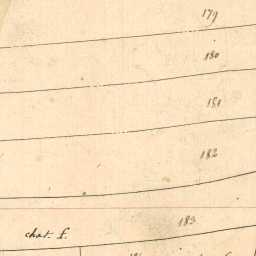 179
180
151
182
183
chat. f.